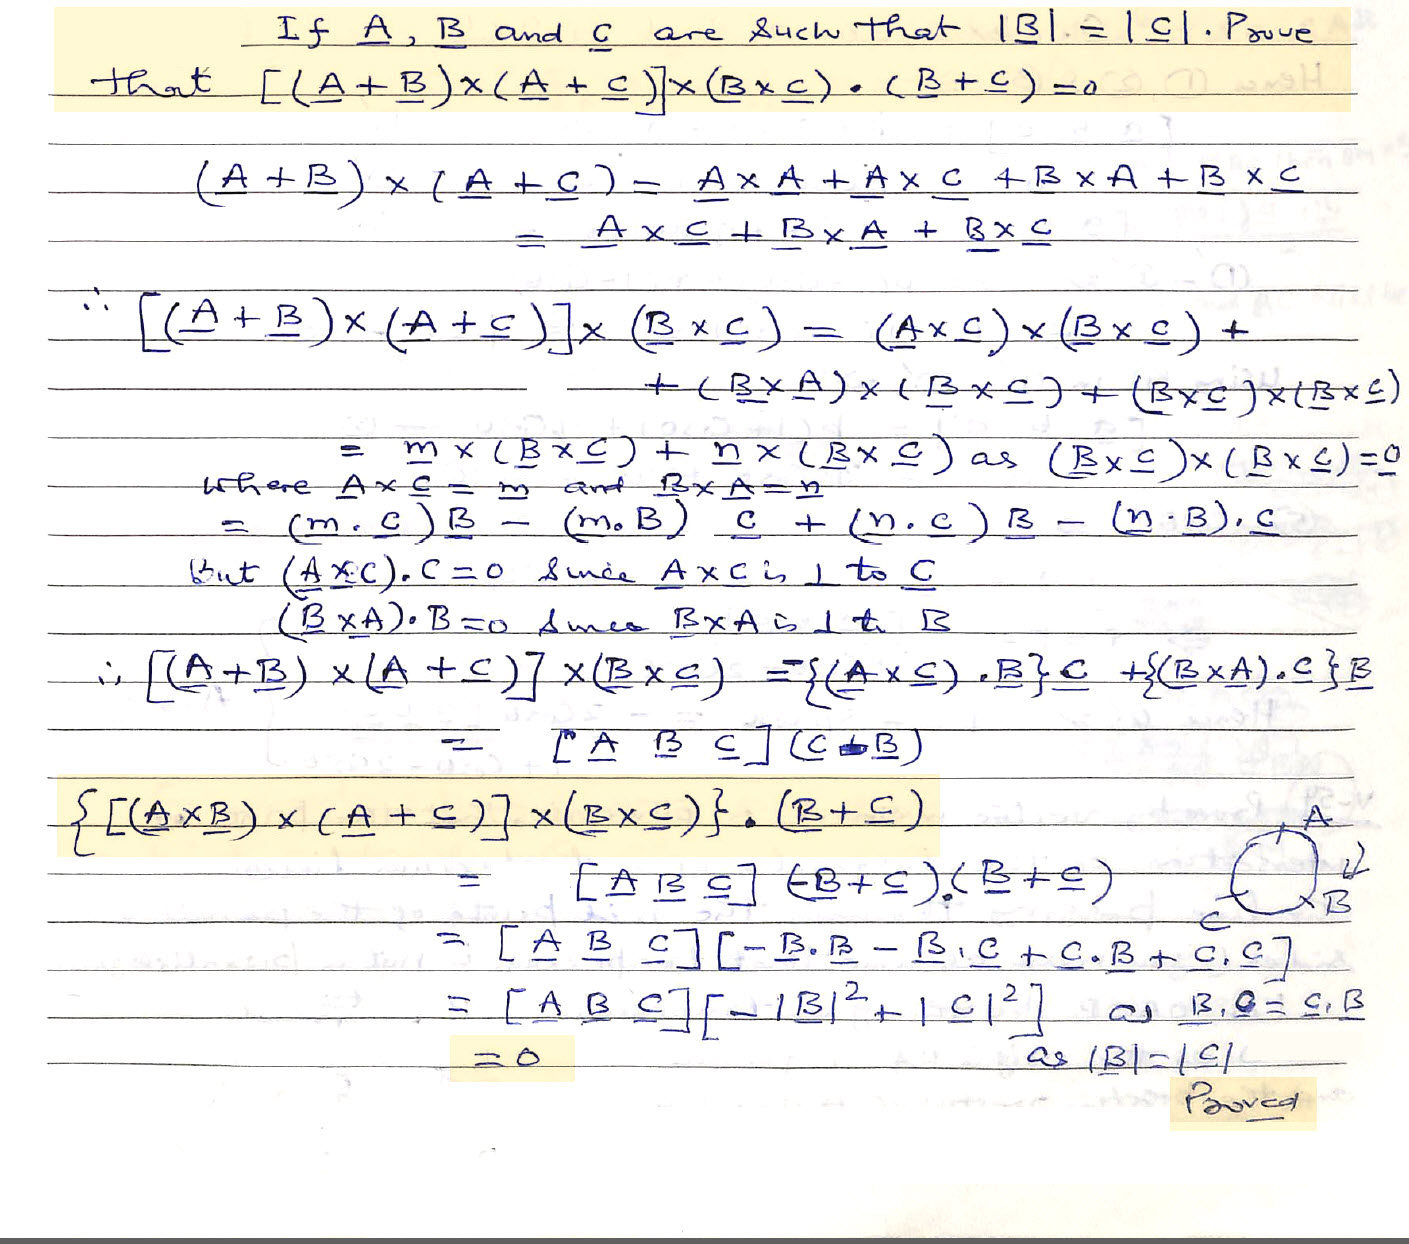 If A, B and C are such that |B| = |C|. Prove
that [(A + B) × (A + C)] × (B × C) . (B + C) = 0
(A + B) × (A + C) = A × A + A × C + B × A + B × C
= A × C + B × A + B × C
∴ [(A + B) × (A + C)] × (B × C) = (A × C) × (B × C) +
+ (B × A) × (B × C) + (B × C) × (B × C)
= m × (B × C) + n × (B × C) as (B × C) × (B × C) = 0
where A × C = m and B × A = n
= (m . C) B − (m . B) C + (n . C) B − (n . B) . C
But (A × C) . C = 0 Since A × C is ⊥ to C
(B × A) . B = 0 Since B × A is ⊥ to B
∴ [(A + B) × (A + C)] × (B × C) = −{(A × C) . B} C + {(B × A) . C} B
= [A B C] (C B)
{[(A × B) × (A + C)] × (B × C)} . (B + C)
A
= [A B C] (−B + C) . (B + C)
B
C
= [A B C] [− B . B − B . C + C . B + C . C]
= [A B C] [− |B|² + |C|²] as B . C = C . B
= 0 as |B| = |C|
Proved